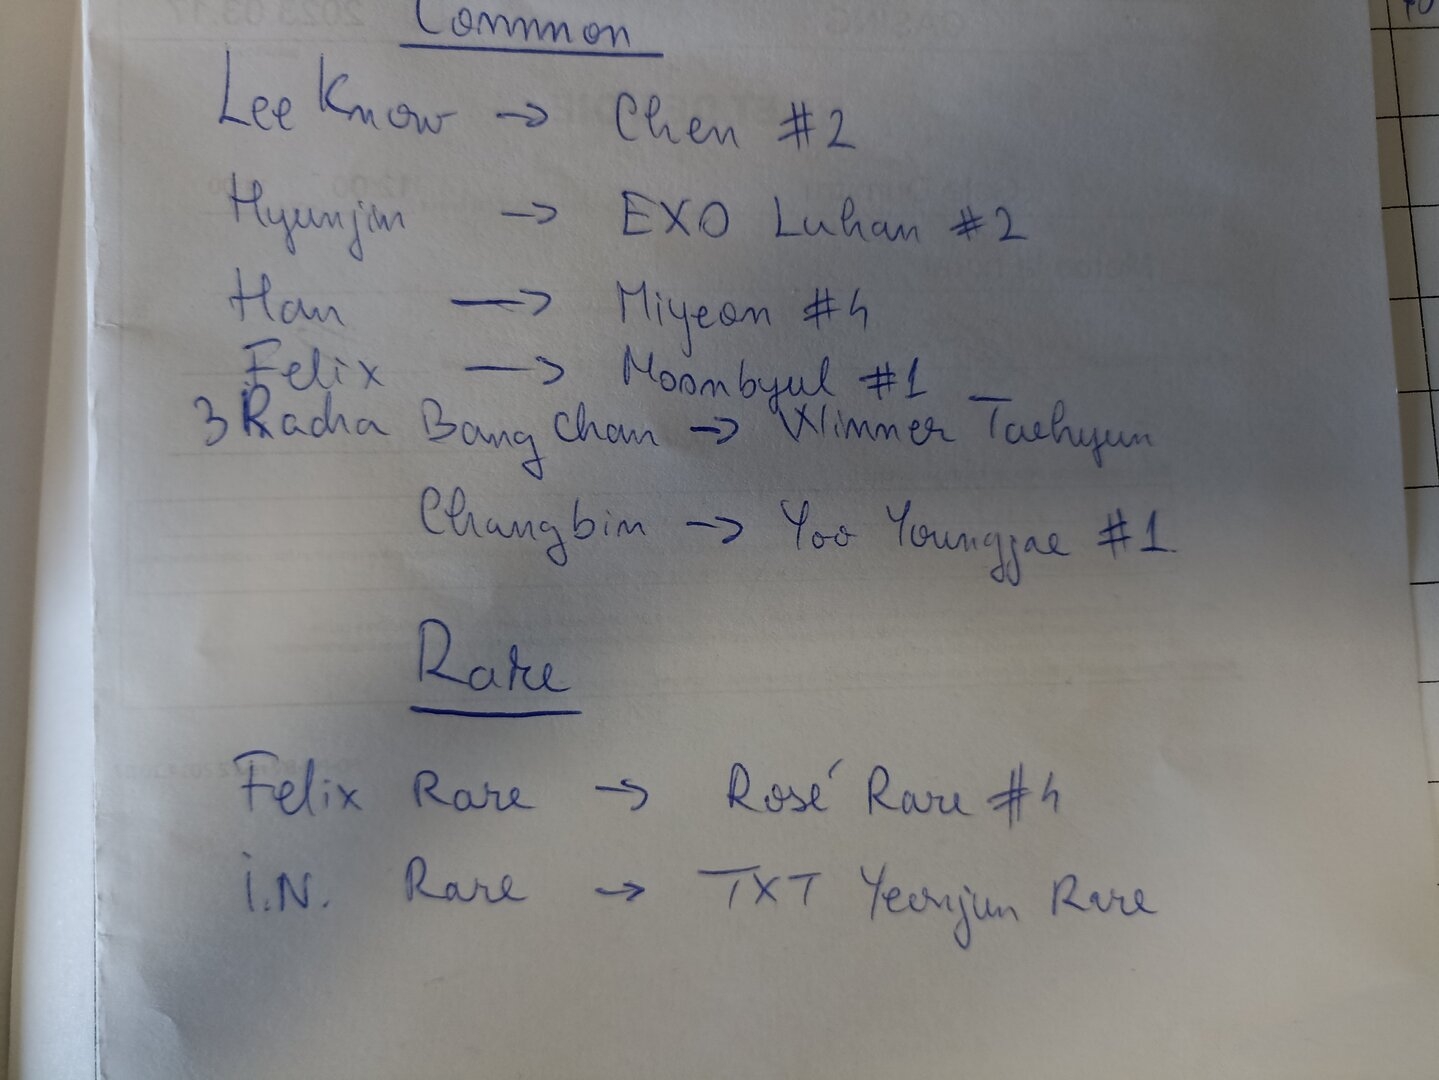 Common
Lee Know → Chen #2
Hyunjin → EXO Luhan #2
Han → Miyeon #4
Felix → Moonbyul #1
3Racha Bang Chan → Winner Taehyun
Changbin → Yoo Youngjae #1
Rare
Felix Rare → Rosé Rare #4
i.N. Rare → TXT Yeonjun Rare